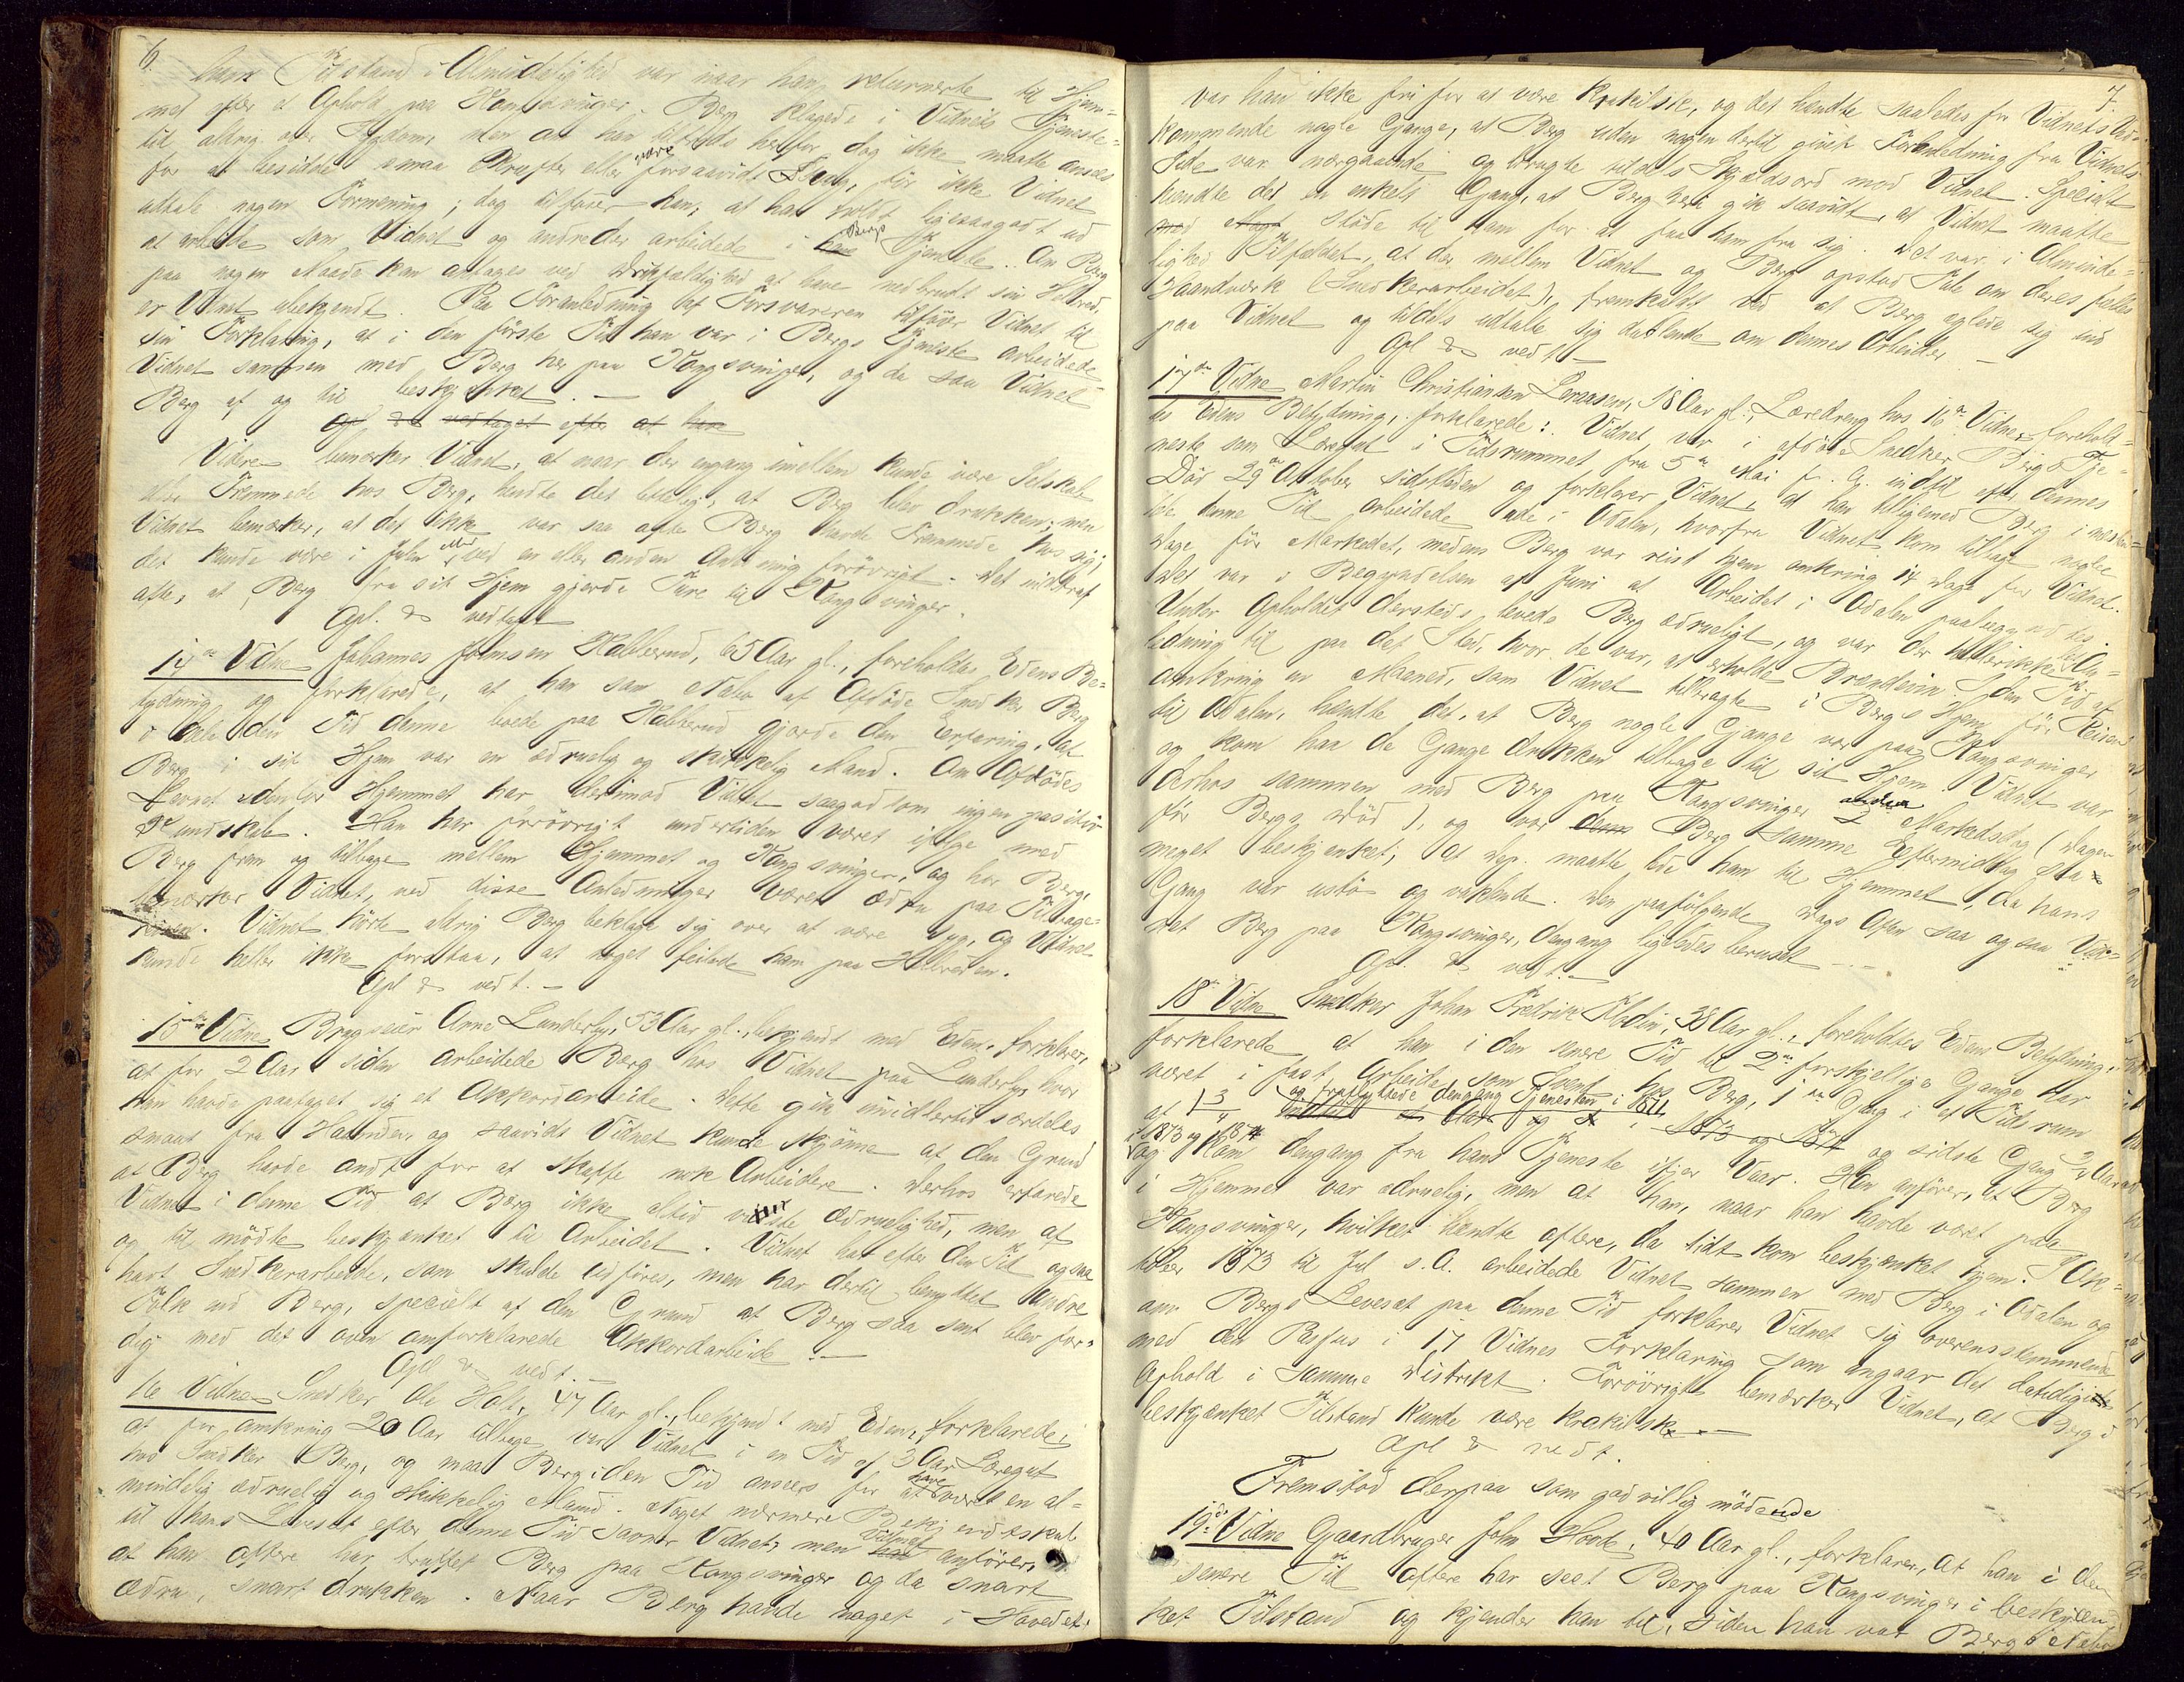 6.
hans Tilstand i Almindelighed var naar han returnerte til Hjem=
met efter et Ophold paa Kongsvinger. Berg klagede i Vidnets Tjeneste=
tid aldrig over Sygdom, men om han tiltrods herfor dog ikke maatte ansees
for at besidde smaa Kræfter eller være forsaavidt svag, tør ikke Vidnet
udtale nogen Formening; dog tilføier han, at han holdt ligesaagodt ud
at arbeide som Vidnet og andre der arbeidede i hans Bergs Tjeneste. Om Berg
paa nogen Maade kan antages ved Drikfældighed at have nedbrudt sin Helbred,
er Vidnet ubekjendt. Paa Foranledning af Forsvareren tilføier Vidnet til
sin Forklaring, at i den første Tid han var i Bergs Tjeneste arbeidede
Vidnet sammen med Berg her paa Kongsvinger, og da saa Vidnet
Berg af og til beskjænket. —
Opl. & vedtaget efter at han
Videre bemærker Vidnet, at naar der engang imellem kunde være Selskab
eller Fremmede hos Berg, hendte det leilig, at Berg blev drukken; men
Vidnet bemærker, at det ikke var saa ofte Berg havde Fremmede hos sig;
det kunde være i Julen eller ved en eller anden Anledning forøvrigt. Det indtraf
ofte, at Berg fra sit Hjem gjorde Ture til Kongsvinger.
Opl. & vedtaget
14de Vidne Johannes Johnsen Kabberud, 65 Aar gl., foreholdtes Edens Be=
tydning og forklarede, at han som Nabo af Afdøde Snedker Berg
i hele den Tid denne boede paa Kabberud gjorde den Erfaring, at
Berg i sit Hjem var en ædruelig og skikkelig Mand. Om Afdødes
Levnet udenfor Hjemmet har derimod Vidnet saagodtsom ingen positiv
Kundskab. Han har forøvrigt undertiden været ifølge med
Berg frem og tilbage mellem Hjemmet og Kongsvinger, og har Berg,
bemærker Vidnet, ved disse Anledninger været ædru paa Tilbage=
reisen. Vidnet hørte aldrig Berg beklage sig over at være syg, og Vidnet
kunde heller ikke forstaa, at noget feilede ham paa Helbreden.
Opl & vedt. —
15de Vidne Brugseier Arne Lunderby, 53 Aar gl., bekjendt med Eden, forklarer,
at for 2 Aar siden arbeidede Berg hos Vidnet paa Lunderby hvor
han havde paataget sig et Akkordarbeide. Dette gik imidlertid særdeles
smaat fra Haanden, og saavidt Vidnet kunde skjønne af den Grund
at Berg havde ondt for at skaffe nok Arbeidere. Derhos erfarede
Vidnet i denne Tid at Berg ikke altid viste Ædruelighed, men af
og til mødte beskjænket til Arbeidet. Vidnet har efter den Tid ogsaa
havt Snedkerarbeide, som skulde udføres, men har dertil benyttet andre
Folk end Berg, specielt af den Grund at Berg saa sent blev fær=
dig med det ovenomforklarede Akkordarbeide. —
Opl & vedt. —
16 Vidne Snedker Ole Holt, 47 Aar gl., bekjendt med Eden, forklarede,
at for omkring 20 Aar tilbage var Vidnet i en Tid af 3 Aar Læregut
hos Snedker Berg, og maa Berg i den Tid ansees for at have været en al=
mindelig ædruelig og skikkelig Mand. Noget nærmere Bekjendtskab
til hans Levesæt efter denne Tid savner Vidnet, men han Vidnet anfører,
at han oftere har truffet Berg paa Kongsvinger og da snart
ædru, snart drukken. Naar Berg havde noget i Hovedet,
7.
var han ikke fri for at være krakilsk, og det hendte saaledes fra Vidnets Ved=
kommende nogle Gange, at Berg uden nogen dertil given Foranledning fra Vidnets
Side var nærgaaende og brugte tildels Skjældsord mod Vidnet. Specielt
hendte det en enkelt Gang, at Berg heri gik saavidt, at Vidnet maatte
støde til ham for at faa ham fra sig. Det var i Alminde=
lighed Tilfældet, at der mellem Vidnet og Berg opstod Tale om deres fælles
Haandværk (Snedkerarbeidet), fremkaldt ved at Berg æglede sig ind
paa Vidnet og tildels udtalte sig dadlende om dennes Arbeider. —
Opl & vedt —
17de Vidne Martin Christiansen Lersaasen, 18 Aar gl., Læredreng hos 16de Vidne, forehold=
tes Edens Betydning, forklarede: Vidnet var i afdøde Snedker Bergs Tje=
neste som Læregut i Tidsrummet fra 5te Mai f. A. indtil efter dennes
Død 29de Oktober sidstleden og forklarer Vidnet, at han tilligemed Berg i næsten
hele denne Tid arbeidede ude i Odalen, hvorfra Vidnet kom tilbage nogle
Dage før Markedet, medens Berg var reist hjem omkring 14 Dage før Vidnet.
Det var i Begyndelsen af Juni at Arbeidet i Odalen paabegyndtes.
Under Opholdet dersteds levede Berg ædrueligt, og var der heller ikke let An=
ledning til paa det Sted, hvor de var, at erholde Brændevin. I den Tid af
omkring en Maaned, som Vidnet tilbragte i Bergs Hjem før Reisen
til Odalen, hendte det, at Berg nogle Gange var paa Kongsvinger
og kom han de Gange drukken tilbage til sit Hjem. Vidnet var
derhos sammen med Berg paa Kongsvinger anden Markedsdag (Dagen
før Bergs Død), og var denne Berg samme Eftermiddag saa
meget beskjænket, at Dep. maatte lede ham til Hjemmet, da hans
Gang var ustø og vaklende. Den paafølgende Dags Aften saa ogsaa Vid=
net Berg paa Kongsvinger, dengang ligeledes beruset. —
Opl. & vedt. —
18de Vidne Snedker Johan Fredrik Flodin, 38 Aar gl., foreholdtes Edens Betydning,
forklarede at han i den senere Tid til 2de forskjellige Gange har
været i fast Arbeide som Svend hos Berg, 1ste Gang i et Tidsrum
og fraflyttede dengang Tjenesten i 1871
af 1 3/4 Aar og sidste Gang 3/4 Aar
i 1873 og 1874
og kom dengang fra hans Tjeneste ifjor Vaar. Han anfører, at Berg
i Hjemmet var ædruelig, men at han, naar han havde været paa
Kongsvinger, hvilket hendte oftere, da tidt kom beskjænket hjem. I Ok=
tober 1873 til Jul s. A. arbeidede Vidnet sammen med Berg i Odalen og
om Bergs Levesæt paa denne Tid forklarer Vidnet sig overensstemmende
med den Passus i 17 Vidnes Forklaring som angaar det datidige
Ophold i samme Distrikt. Forøvrigt bemærker Vidnet, at Berg i
beskjænket Tilstand kunde være krakilsk. —
Opl & vedt.
Fremstod derpaa som godvillig mødende
19de Vidne Gaardbruger John Hovde, 40 Aar gl., forklarer, at han i den
senere Tid oftere har seet Berg paa Kongsvinger i beskjæn
ket Tilstand og kjender han til, siden han var Bergs Nabo